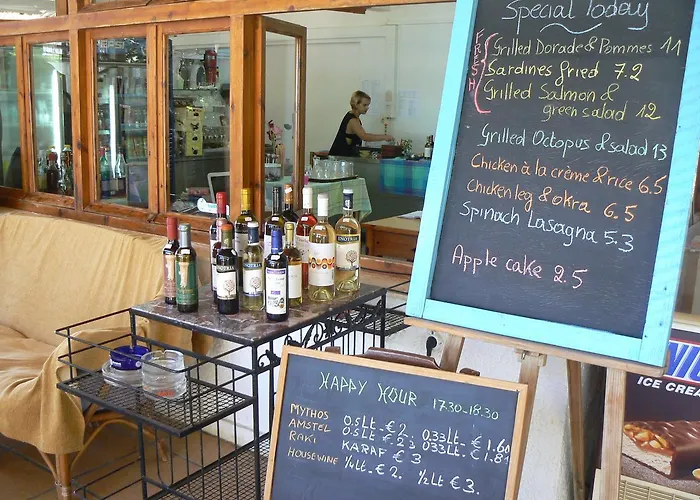 Special Today
FRESH
Grilled Dorade & Pommes 11
Sardines fried 7.2
Grilled Salmon &
green salad 12
Grilled Octopus & salad 13
Chicken à la crème & rice 6.5
Chicken leg & okra 6.5
Spinach Lasagna 5.3
Apple cake 2.5
HAPPY HOUR 17.30-18.30
MYTHOS 0,5Lt - € 2. 0,33Lt - € 1.60
AMSTEL 0.5Lt - € 2,3 0,33Lt - € 1.81
RAKI KARAF € 3
HOUSEWINE 1/4Lt - € 2. 1/2Lt € 3.
ICE CREAM